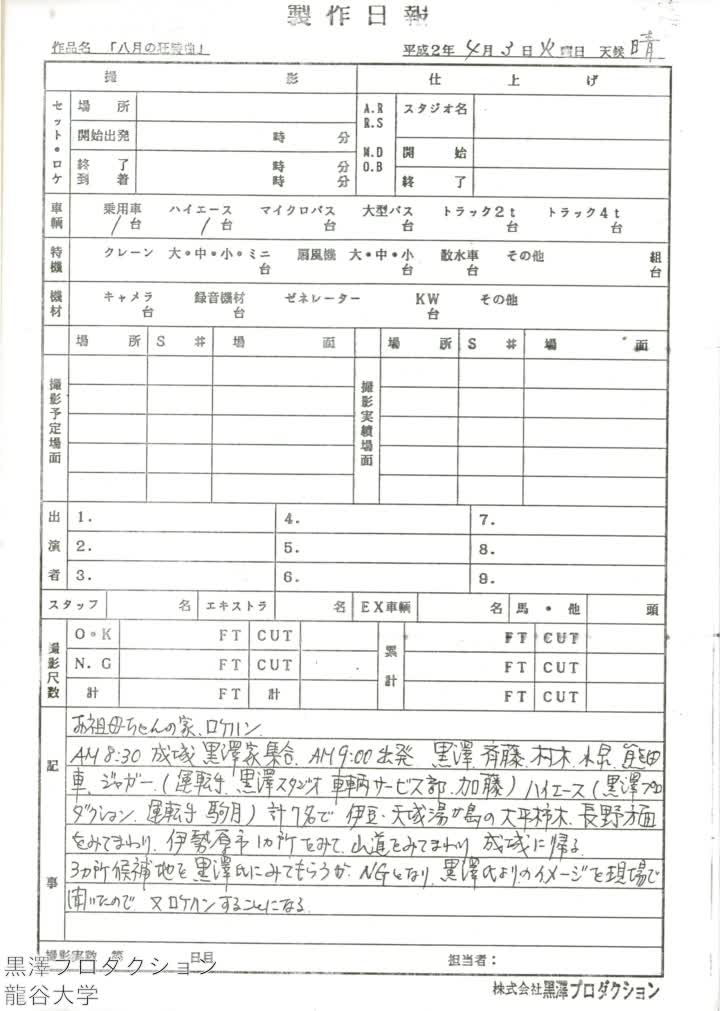 製作日報
作品名 「八月の狂詩曲」 平成2年 4月3日火曜日 天候 晴
撮影 仕上げ
セット・ロケ 場所 A.R R.S スタジオ名
開始出発 時 分
終了 時 分 N.D O.B 開始
到着 時 分 終了
車輌 乗用車 1台 ハイエース 1台 マイクロバス 台 大型バス 台 トラック2t 台 トラック4t 台
特機 クレーン 大・中・小・ミニ 台 扇風機 大・中・小 台 散水車 台 その他 組 台
機材 キャメラ 台 録音機材 台 ゼネレーター KW 台 その他
場所 S# 場面 場所 S# 場面
撮影予定場面 撮影実績場面
出演者 1. 4. 7.
2. 5. 8.
3. 6. 9.
スタッフ 名 エキストラ 名 EX車輌 名 馬・他 頭
撮影尺数 O・K FT CUT 累計 FT CUT
N.G FT CUT FT CUT
計 FT 計 FT CUT
記事
お祖母ちゃんの家、ロケハン
AM8:30 成城 黒澤家集合、AM9:00出発 黒澤、斉藤、村木、水泉、熊田
車、ジャガー(運転手、黒澤スタジオ 車輌サービス部、加藤) ハイエース(黒澤プロ
ダクション、運転手 駒月) 計7名で 伊豆・天城湯ヶ島の大平柿木、長野方面
をみてまわり、伊勢原市1ヵ所をみて、山道をみてまわり、成城に帰る。
3ヵ所候補地を黒澤氏にみてもらうが、NGとなり、黒澤氏よりのイメージを現場で
聞いたので、又ロケハンすることになる。
撮影実数 第 日目 担当者:
株式会社黒澤プロダクション
黒澤プロダクション
龍谷大学